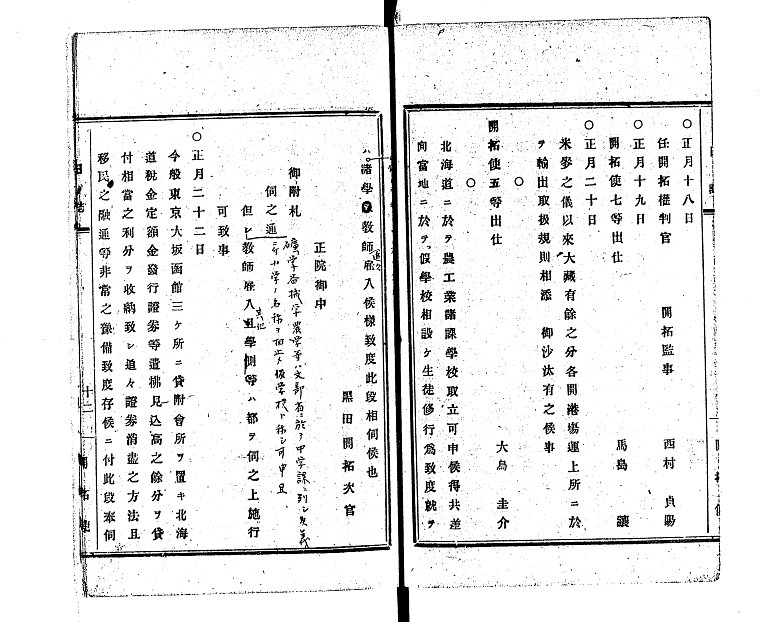 ○正月十八日
任開拓權判官　開拓監事　西村貞陽
○正月十九日
開拓使七等出仕　馬島　讓
○正月二十日
米麥之儀以來大藏有餘之分各開港場運上所ニ於
ヲ輸出取扱規則相添　御沙汰有之候事
○
開拓使五等出仕　大鳥圭介
○
北海道ニ於テ農工業諸課學校取立可申候得共差
向當地ニ於テ假學校相設ケ生徒修行爲致度就テ
ハ諸學教師追々雇入候樣致度此段相伺候也
黒田開拓次官
正院御中
御附札
伺之通
礦学器械学農学等ハ文部省ニ於テ甲学課ニ列シ
但シ教師雇入且其他學側等ハ都ヲ伺之上施行
可致事
○正月二十二日
今般東京大坂函館三ケ所ニ貸附會所ヲ置キ北海
道税金定額金發行證券等遣拂見込高之餘分ヲ貸
付相當之利分ヲ收納致シ追々證券消盡之方法且
移民之融通等非常之豫備致度存候ニ付此段奉伺
十二
開拓使